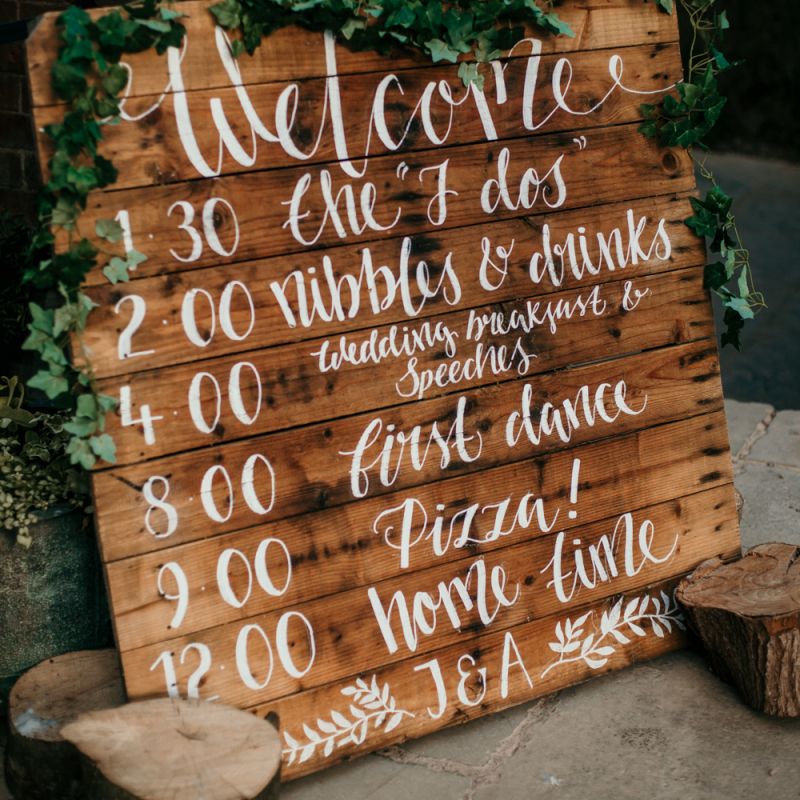 Welcome
1.30 the "I dos"
2.00 nibbles & drinks
4.00 Wedding breakfast &
Speeches
8.00 first dance
9.00 Pizza!
12.00 home time
J&A